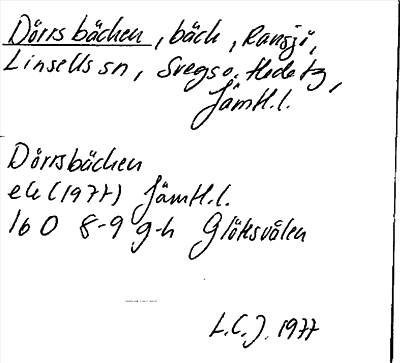 Dörrsbäcken, bäck, Ransjö,
Linsells sn, Svegs o. Hede tg,
Jämtl.l.
Dörrsbäcken
ek (1977) Jämtl.l.
16 O 8-9 g-h Glöksvålen
L.C.J. 1977